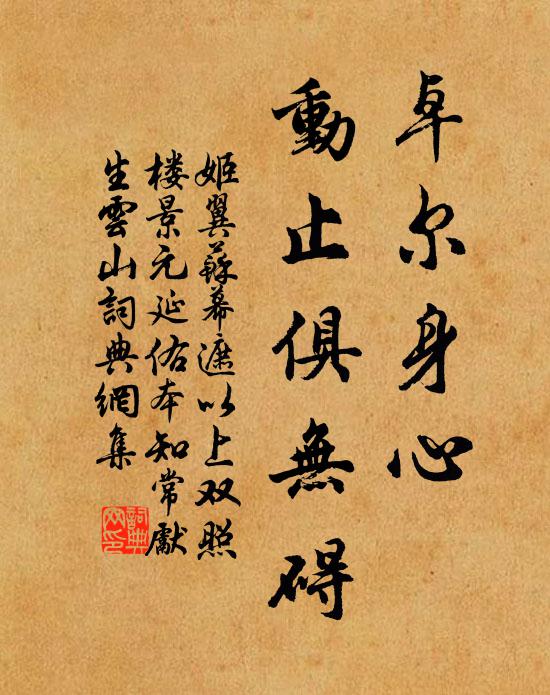 卓尔身心
動止俱無碍
姬翼蘇幕遮以上双照
楼景元延佑本知常獻
生雲山詞典網集
詞典
网印